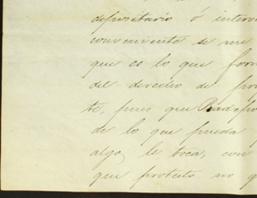 depositario ó interv
convenimiento de mi
que es lo que for
del derecho de pro
te, pues que
de lo que pueda
algo, le toca, con
que protesto no q